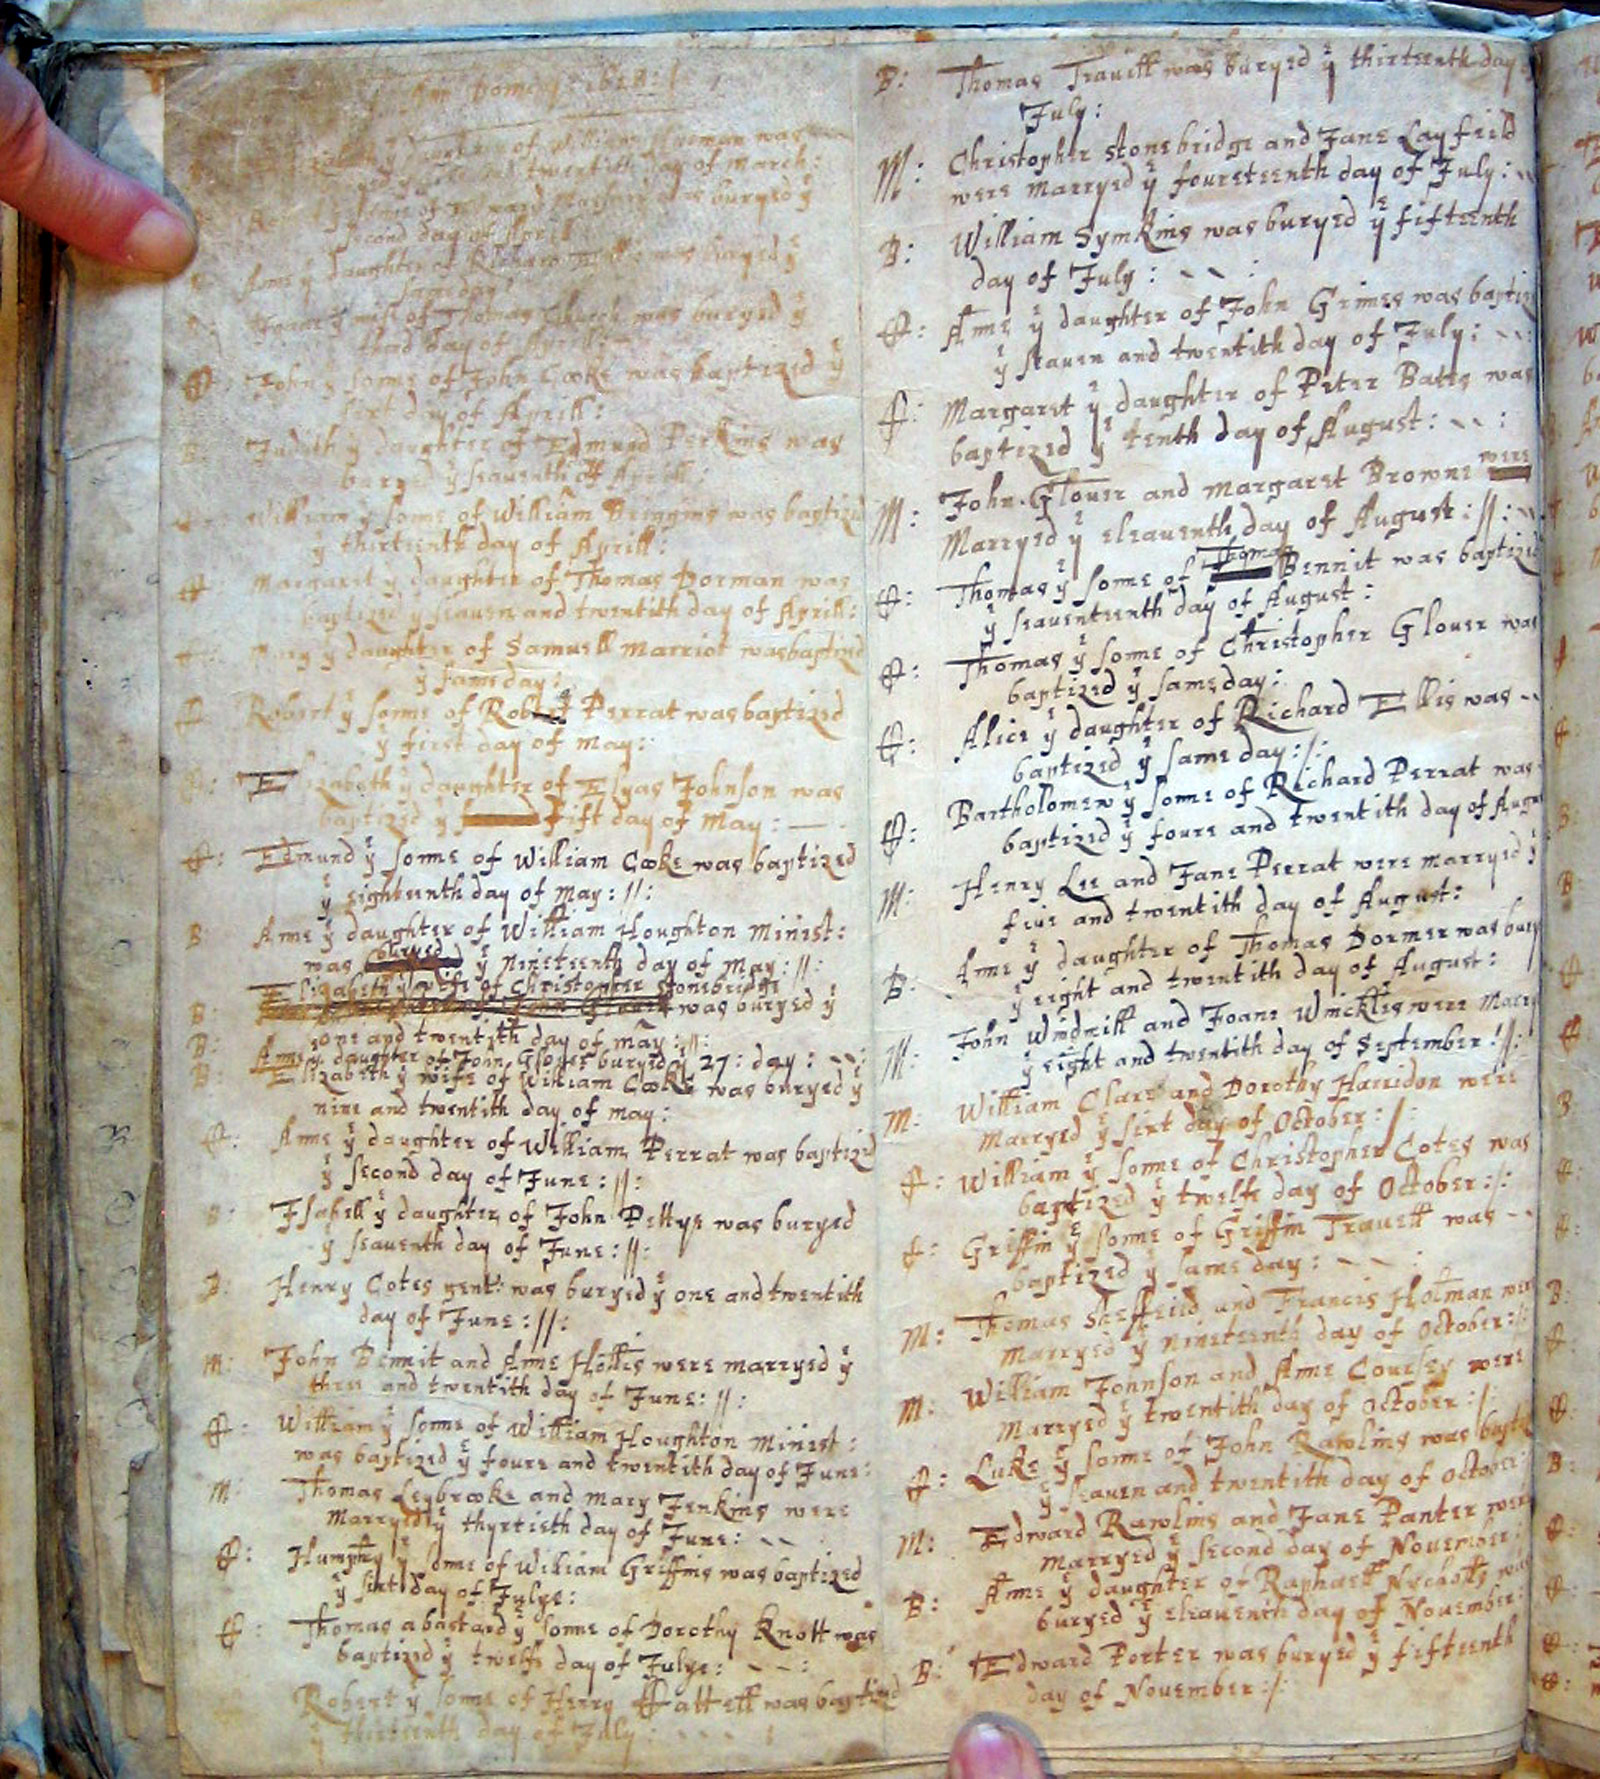 Ano Domeni 1628:
Elizabeth ẙ daughter of William was
twentith day of March:
sonne of Edward was buryed ẙ
second day of Aprill
Ame ẙ daughter of Richard was buryed ẙ
same day:
ẙ wife of Thomas Church was buryed ẙ
third day of Aprill:
John ẙ sonne of John Cooke was baptized ẙ
sixt day of Aprill:
B: Judith ẙ daughter of Edmund Perkins was
buryed ẙ seaventh of Aprill:
William ẙ sonne of William Briggins was baptized
ẙ thirteenth day of Aprill:
Margaret ẙ daughter of Thomas Dorman was
baptized ẙ seaven and twentith day of Aprill:
Mary ẙ daughter of Samuell Marriot was baptized
ẙ same day:
Robert ẙ sonne of Robert Perrat was baptized
ẙ first day of May:
Elizabeth ẙ daughter of Elyas Johnson was
baptized ẙ fift day of May:
Edmund ẙ sonne of William Cooke was baptized
ẙ eighteenth day of May: //:
B: Ame ẙ daughter of William Houghton Minist:
was buryed ẙ nineteenth day of May: //:
Elizabeth ẙ wife of Christopher Stonebridge
B: was buryed ẙ
one and twentith day of may: //:
B: Ame ẙ daughter of John Glover buryed ẙ 27: day:
B: Elizabeth ẙ wife of William Cooke was buryed ẙ
nine and twentith day of may:
Ame ẙ daughter of William Perrat was baptized
ẙ second day of June: //:
B: Isabell ẙ daughter of John Pettye was buryed
ẙ seaventh day of June: //:
B: Henry Cotes gent: was buryed ẙ one and twentith
day of June: //:
M: John Bennit and Ame Hollis were marryed ẙ
three and twentith day of June: //:
William ẙ sonne of William Houghton Minist:
was baptized ẙ foure and twentith day of June:
M: Thomas Leybrooke and Mary Jenkins were
Marryed ẙ thyrtieth day of June:
Humphry ẙ sonne of William Griffins was baptized
ẙ sixt day of Julye:
Thomas a bastard ẙ sonne of Dorothy Knott was
baptized ẙ twelfe day of Julye:
Robert ẙ sonne of Henry ffattell was baptized
ẙ thirteenth day of July:
B: Thomas Travell was buryed ẙ thirteenth day of
July:
M: Christopher Stonebridge and Jane Layfeild
were marryed ẙ foureteenth day of July:
B: William Symkins was buryed ẙ fifteenth
day of July:
Ame ẙ daughter of John Grimes was baptiz
ẙ seaven and twentith day of July:
Margaret ẙ daughter of Peter Bates was
baptized ẙ tenth day of August:
M: John Glover and Margaret Browne were
Marryed ẙ eleaventh day of August: //:
Thomas ẙ sonne of Thomas Bennit was baptized
ẙ seaventeenth day of August:
Thomas ẙ sonne of Christopher Glover was
baptized ẙ same day:
Alice ẙ daughter of Richard Ellis was
baptized ẙ same day: /:
Bartholomew ẙ sonne of Richard Perrat was
baptized ẙ foure and twentith day of Augu
M: Henry Lee and Jane Perrat were marryed ẙ
five and twentith day of August:
B: Ame ẙ daughter of Thomas Dormer was bury
ẙ eight and twentith day of August:
M: John Windmill and Joane Winckles were Marry
ẙ eight and twentith day of September: //:
M: William Clare and Dorothy Harridon were
Marryed ẙ sixt day of October: /:
William ẙ sonne of Christopher Cotes was
baptized ẙ twelfe day of October: /:
Griffin ẙ sonne of Griffin Travell was
baptized ẙ same day:
M: Thomas Sheffeild and Francis Holman wer
Marryed ẙ nineteenth day of October: /:
M: William Johnson and Ame Coursey were
Marryed ẙ twentith day of October: /:
Luke ẙ sonne of John Rawlins was bapti
ẙ seaven and twentith day of October:
M: Edward Rawlins and Jane Panter were
Marryed ẙ second day of November:
B: Ame ẙ daughter of Raphaell Nycholls was
buryed ẙ eleaventh day of November:
B: Edward Porter was buryed ẙ fifteenth
day of November: /: